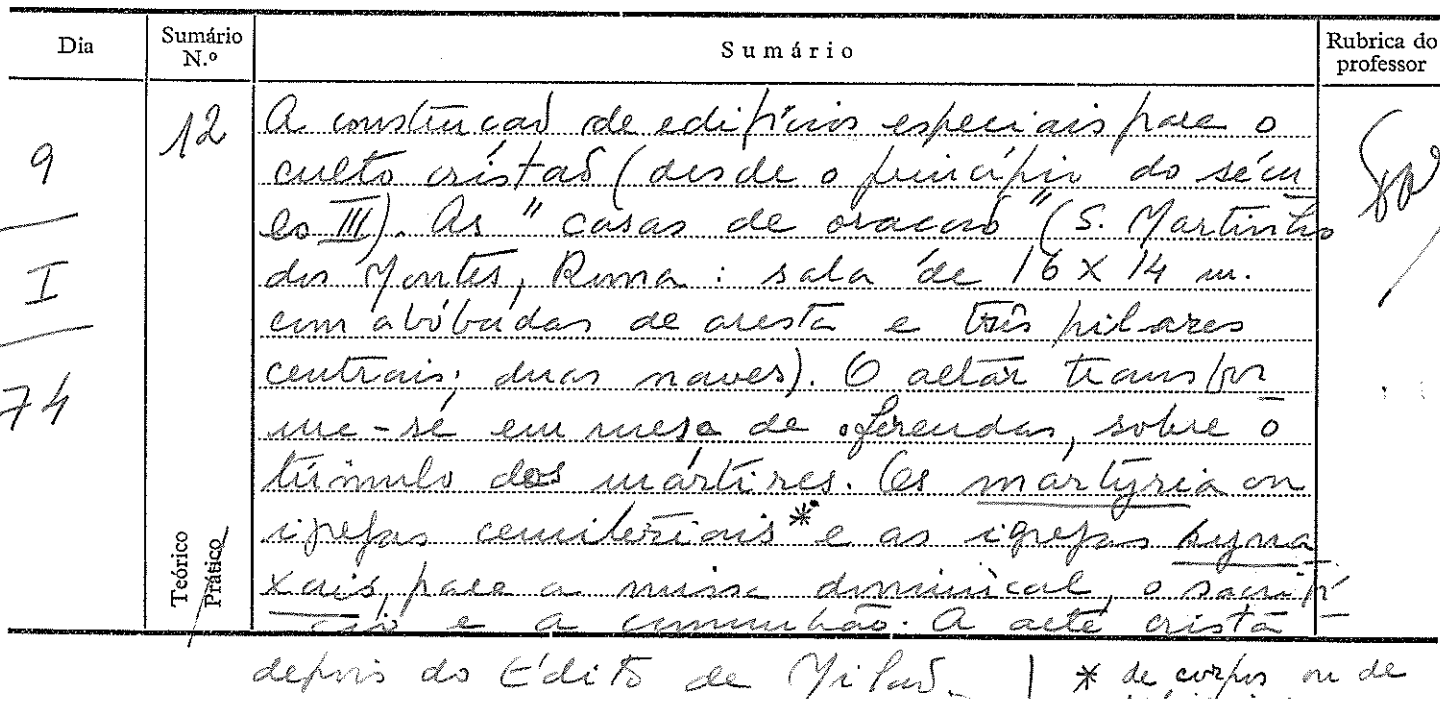 Dia
Sumário
N.º
Sumário
Rubrica do
professor
9
I
74
12
A construção de edifícios especiais para o
culto cristão (desde o princípio do sécu
lo III). As "casas de oração" (S. Martinho
dos Montes, Roma: sala de 16 X 14 m.
com abóbadas de aresta e três pilares
centrais; duas naves). O altar transfor
ma-se em mesa de oferendas, sobre o
túmulo dos mártires. Os martyria ou
igrejas cemiteriais* e as igrejas syna
xais, para a missa dominical, o sacrifí
cio e a comunhão. A arte cristã
depois do Édito de Milão. | * de corpos ou de
Teórico
Prático